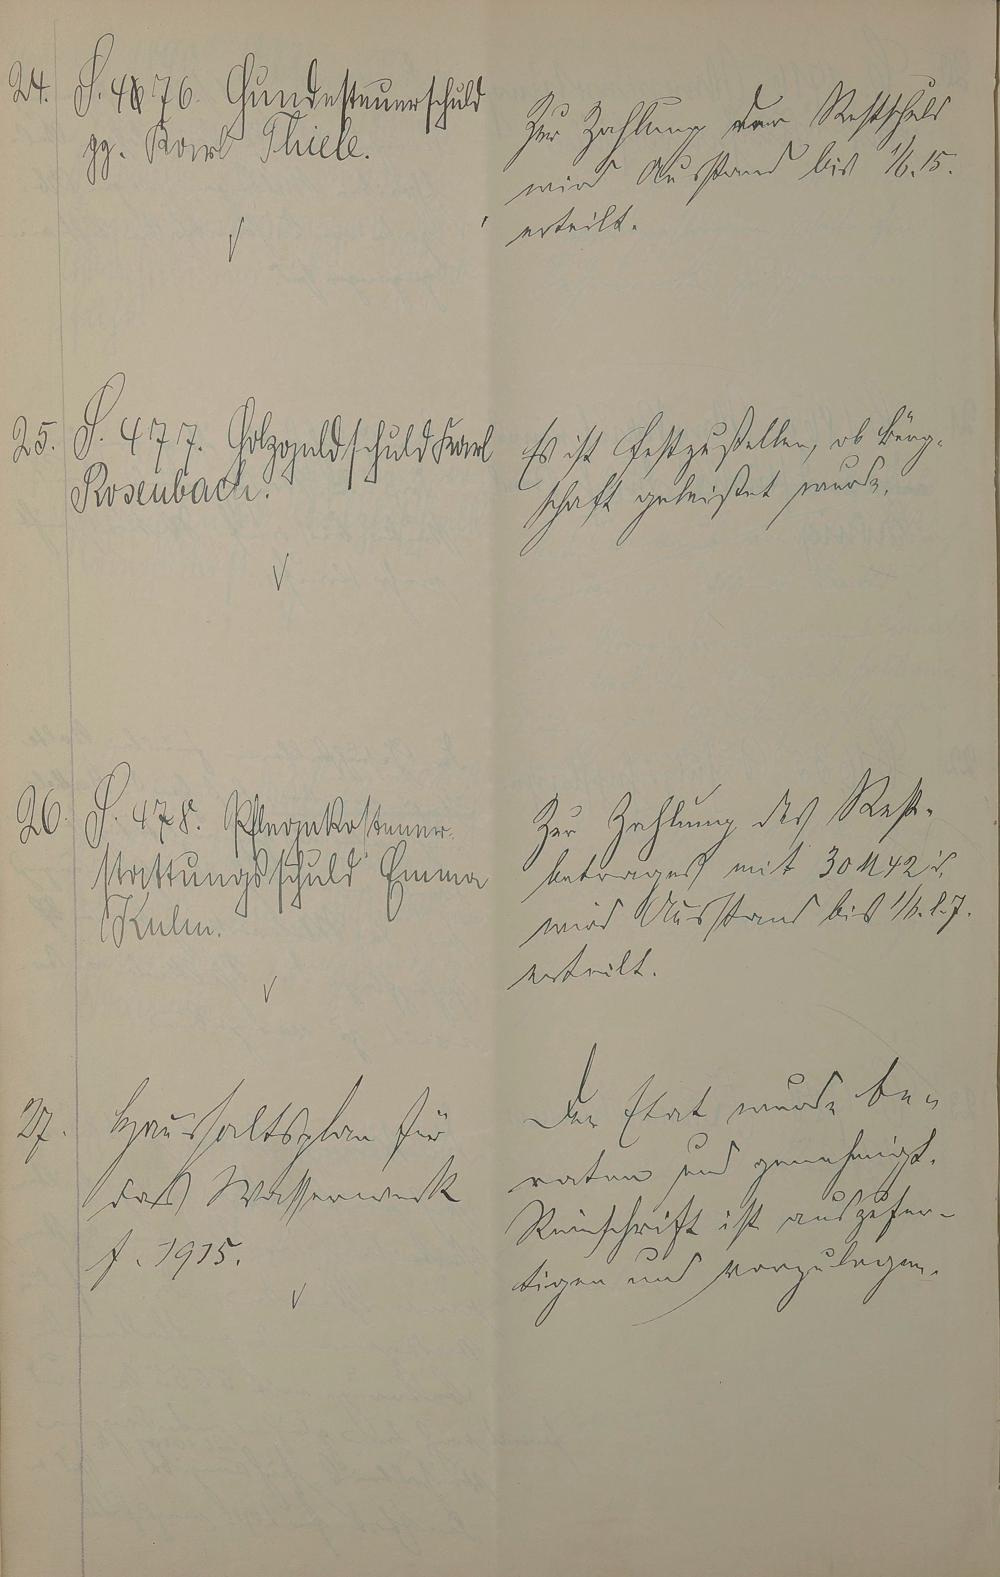 24. S. 476. Hundesteuerschuld
gg. Karl Thiele.
Zur Zahlung der Restschuld
wird Ausstand bis 1/6. 15.
erteilt.
25. S. 477. Holzgeldschuld Karl
Rosenbach.
Es ist festzustellen, ob Bürg-
schaft geleistet wurde.
26. S. 478. Pflegekostener-
stattungsschuld Emma
Kulm.
Zur Zahlung des Rest-
betrages mit 30 M 42 d
wird Ausstand bis l. J.
erteilt.
27. Haushaltsplan für
das Wasserwerk
f. 1915.
Der Etat wurde be-
raten und genehmigt.
Reinschrift ist auszufer-
tigen und vorzulegen.